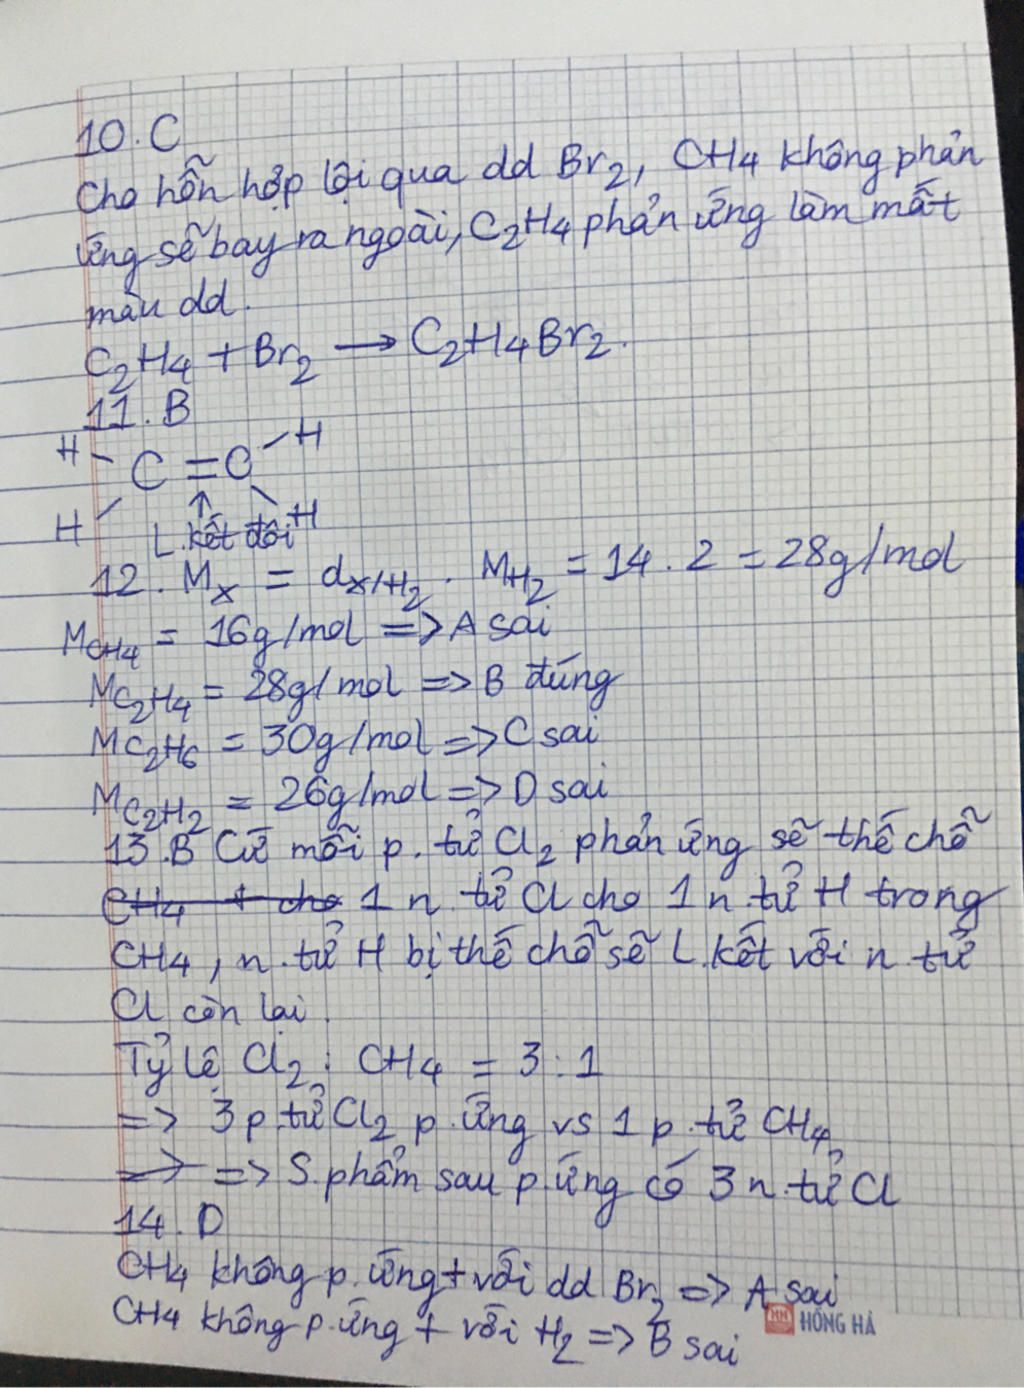 10. C
Cho hỗn hợp lội qua dd Br2, CH4 không phản
ứng sẽ bay ra ngoài, C2H4 phản ứng làm mất
màu dd.
C2H4 + Br2 → C2H4Br2.
11. B
H C = C H
H ↑ H
L.kết đôi
12. Mx = dx/H2 . MH2 = 14 . 2 = 28g/mol
MCH4 = 16g/mol => A sai
MC2H4 = 28g/mol => B đúng
MC2H6 = 30g/mol => C sai
MC2H2 = 26g/mol => D sai
13. B Cứ mỗi p.tử Cl2 phản ứng sẽ thế chỗ
CH4 + cho 1 n.tử Cl cho 1 n.tử H trong
CH4, n.tử H bị thế chỗ sẽ L.kết với n.tử
Cl còn lại.
Tỷ lệ Cl2 : CH4 = 3 : 1
=> 3 p.tử Cl2 p.ứng vs 1 p.tử CH4
=> => S.phẩm sau p.ứng có 3 n.tử Cl
14. D
CH4 không p.ứng + với dd Br2 => A sai
CH4 không p.ứng + với H2 => B sai
HH HỒNG HÀ